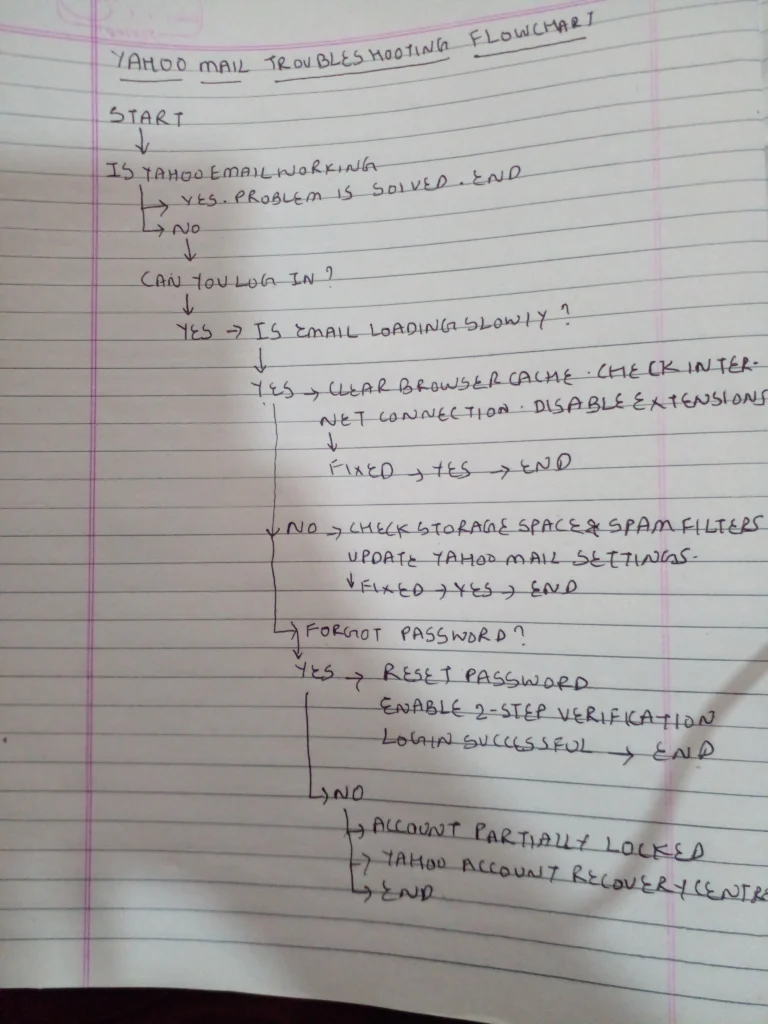 YAHOO MAIL TROUBLESHOOTING FLOWCHART
START
↓
IS YAHOO EMAIL WORKING
→ YES. PROBLEM IS SOLVED. END
→ NO
↓
CAN YOU LOG IN?
↓
YES → IS EMAIL LOADING SLOWLY?
↓
YES → CLEAR BROWSER CACHE. CHECK INTER-
NET CONNECTION. DISABLE EXTENSIONS
↓
FIXED → YES → END
NO → CHECK STORAGE SPACE & SPAM FILTERS
UPDATE YAHOO MAIL SETTINGS.
↓ FIXED → YES → END
→ FORGOT PASSWORD?
↓
YES → RESET PASSWORD
ENABLE 2-STEP VERIFICATION
LOGIN SUCCESSFUL → END
→ NO
→ ACCOUNT PARTIALLY LOCKED
→ YAHOO ACCOUNT RECOVERY CENTRE
→ END